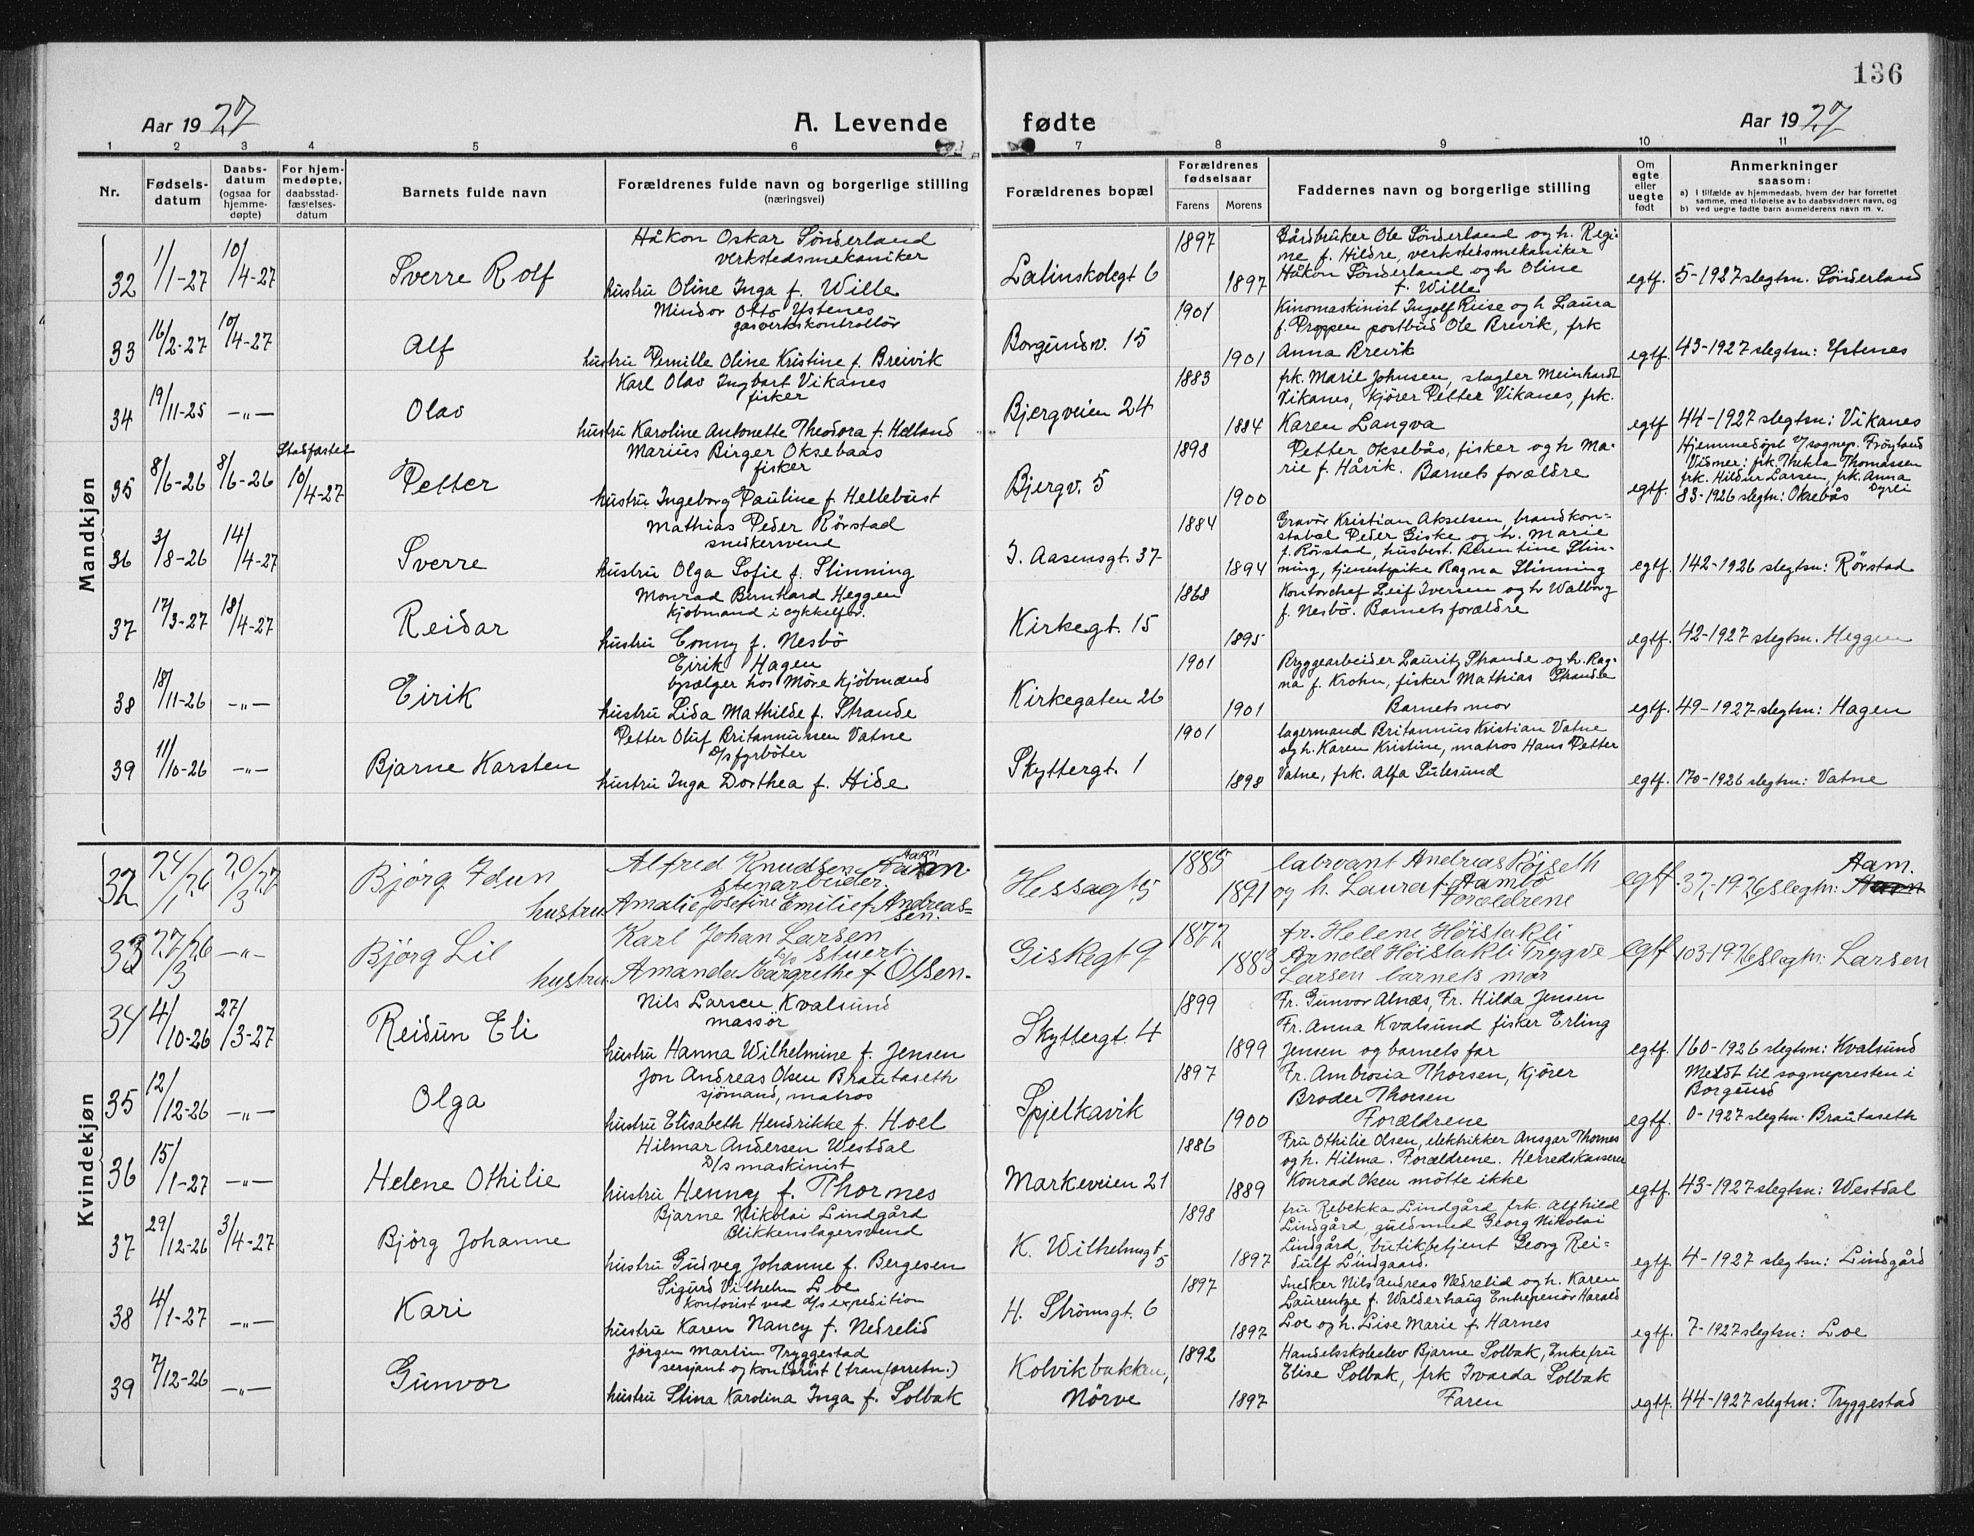 136
Aar 1927
A. Levende fødte
Aar 1927
1 2 3 4 5 6 7 8 9 10 11
Nr.
Fødsels-
datum
Daabs-
datum
(ogsaa for
hjemme-
døpte)
For hjem-
medøpte,
daabsstad-
fæstelses-
datum
Barnets fulde navn
Forældrenes fulde navn og borgerlige stilling
(næringsvei)
Forældrenes bopæl
Forældrenes
fødselsaar
Farens Morens
Faddernes navn og borgerlige stilling
Om
egte
eller
uegte
født
Anmerkninger
saasom:
a) i tilfælde av hjemmedaab, hvem der har forrettet
samme, med tilføielse av to daabsvidners navn, og
b) ved uegte fødte barn anmelderens navn m. v.
Mandkjøn
32 1/1-27 10/4-27 Sverre Rolf
Håkon Oskar Sönderland
verkstedsmekaniker
hustru Oline Inga f. Wille
Latinskolegt 6
1897 1897
Gårdbruker Ole Sönderland og h. Regi-
ne f. Hildre, verkstedsmekaniker
Håkon Sönderland og h Oline
f. Wille
egtf. 5-1927 slegtsn. Sönderland
33 16/2-27 10/4-27 Alf
Mindor Otto Ystenes
gasverkskontrollör
hustru Pernille Oline Kristine f. Breivik
Borgundv. 15
1901 1901
Kinomaskinist Ingolf Ruse og h Laura
f. Proppen postbud Ole Brevik, frk
Anna Brevik
egtf. 43-1927 slegtsn: Ystenes
34 19/11-25 -"- Olav
Karl Olav Ingbart Vikanes
fisker
hustru Karoline Antonette Theodora f. Helland
Bjergveien 24
1883 1884
frk. Marie Johnsen, slagter Meinhardt
Vikanes, kjörer Petter Vikanes, frk.
Karen Langva
egtf 44-1927 slegtsn: Vikanes
35 8/6-26 8/6-26 Stadfæstet 10/4-27 Petter
Marius Birger Oksebaas
fisker
hustru Ingeborg Pauline f. Hellebust
Bjergv. 5
1898 1900
Petter Oksebås, fisker og h Ma-
rie f. Håvik. Barnets forældre
egtf.
Hjemmedöpt v/ sognep. Fröyland
Vidner: frk. Thekla Thomassen
frk. Hildur Larsen, frk. Anna
Dyrli
83-1926 slegtsn: Oksebås
36 3/8-26 14/4-27 Sverre
Mathias Peder Rörstad
snedkersvend
hustru Olga Sofie f. Slinning
I. Aasensgt. 37
1884 1894
Gravör Kristian Akselsen, brandkon-
stabel Peder Giske og h. Marie
f. Rörstad, husbest. Berentine Slin-
ning, tjenestepike Ragna Slinning
egtf. 142-1926 slegtsn: Rörstad
37 17/3-27 18/4-27 Reidar
Monrad Bernhard Heggen
kjöbmand i cykkelfor.
hustru Conny f. Nesbö
Kirkegt. 15
1868 1895
Kontorchef Leif Iversen og h Walborg
f. Nesbö. Barnets forældre
egtf. 42-1927 slegtsn. Heggen
38 18/11-26 -"- Eirik
Eirik Hagen
bysælger hos Möre kjöbmænd
hustru Lida Mathilde f. Strande
Kirkegaten 26
1901 1901
Bryggearbeider Lauritz Strande og h. Rag-
na f. Krohn, fisker Mathias Strande
Barnets mor
egtf. 49-1927 slegtsn: Hagen
39 11/10-26 -"- Bjarne Karsten
Petter Oluf Britannusen Vatne
D/s fyrböter
hustru Inga Dorthea f. Hide
Skyttergt. 1
1901 1898
lagermand Britannius Kristian Vatne
og h. Karen Kristine, matros Hans Petter
Vatne, frk. Alfa Sulesund
egtf. 170-1926 slegtsn: Vatne
Kvindekjøn
32 24/1 26 20/3 27 Bjørg Idun
Alfred Knudsen Aam
stenarbeider
hustru Amalie Josefine Emilie f Andreas-
sen.
Hessagt 5
1885 1891
Andreas Röjseth
og h. Laura f. Aambö
Forældrene
egtf. 37-1926 slegtn: Aam.
33 27/3 26 -"- Bjørg Lil
Karl Johan Larsen
D/s stuert
hustru Amanda Margrethe f Olsen.
Giskegt 9
1877 1883
Fr. Helene Höistakli
Arnold Höistakli Trygve
Larsen barnets mor
egtf 103-1926 slegtn: Larsen
34 4/10-26 27/3-27 Reidun Eli
Nils Larsen Kvalsund
massör
hustru Hanna Wilhelmine f. Jensen
Skyttergt. 4
1899 1899
Fr. Gunvor Alnæs, Fr. Hilda Jensen
Fr. Anna Kvalsund fisker Erling
Jensen og barnets far
egtf. 160-1926 slegtsn: Kvalsund
35 12/12-26 -"- Olga
Jon Andreas Olsen Brautaseth
sjömand, matros
hustru Elisabeth Hendrikke f. Hoel
Spjelkavik
1897 1900
Fr. Ambrosia Thorsen, kjörer
Broder Thorsen
Forældrene
egtf.
Meldt til sognepresten i
Borgund
0-1927 slegtsn. Brautaseth
36 15/1-27 -"- Helene Othilie
Hilmar Andersen Westdal
D/s maskinist
hustru Henny f. Thormes
Markeveien 21
1886 1889
Fru Othilie Olsen, elektrikker Ansgar Thormes
og h. Hilma. Forældrene. Herredskasserer
Konrad Olsen mötte ikke
egtf. 43-1927 slegtsn: Westdal
37 29/12-26 3/4-27 Björg Johanne
Bjarne Nikolai Lindgård
Blikkenslagersvend
hustru Gudveg Johanne f. Bergesen
K. Wilhelmsgt. 5
1898 1897
fru Rebekka Lindgård frk. Alfhild
Lindgård, guldsmed Georg Nikolai
Lindgård, butikbetjent Georg Rei-
dulf Lindgaard.
egtf. 4-1927 slegtsn: Lindgård
38 4/1-27 -"- Kari
Sigurd Vilhelm Loe
kontorist ved d/s expedition
hustru Karen Nancy f. Nedrelid
H. Strömsgt. 6
1897 1897
Snedker Nils Andreas Nedrelid og h. Karen
Laurentze f. Walderhaug Entrepenör Harald
Loe og h. Lise Marie f. Harnes
egtf. 7-1927 slegtsn: Loe
39 7/12-26 -"- Gunvor
Jörgen Martin Tryggestad
sersjant og kontorist (tranforretn.)
hustru Stina Karolina Inga f. Solbak
Kolvikbakken,
Nörve
1892 1897
Handelsskoleelev Bjarne Solbak, Enkefru
Elise Solbak, frk Ivarda Solbak
Faren
egtf. 44-1927 slegtsn: Tryggestad